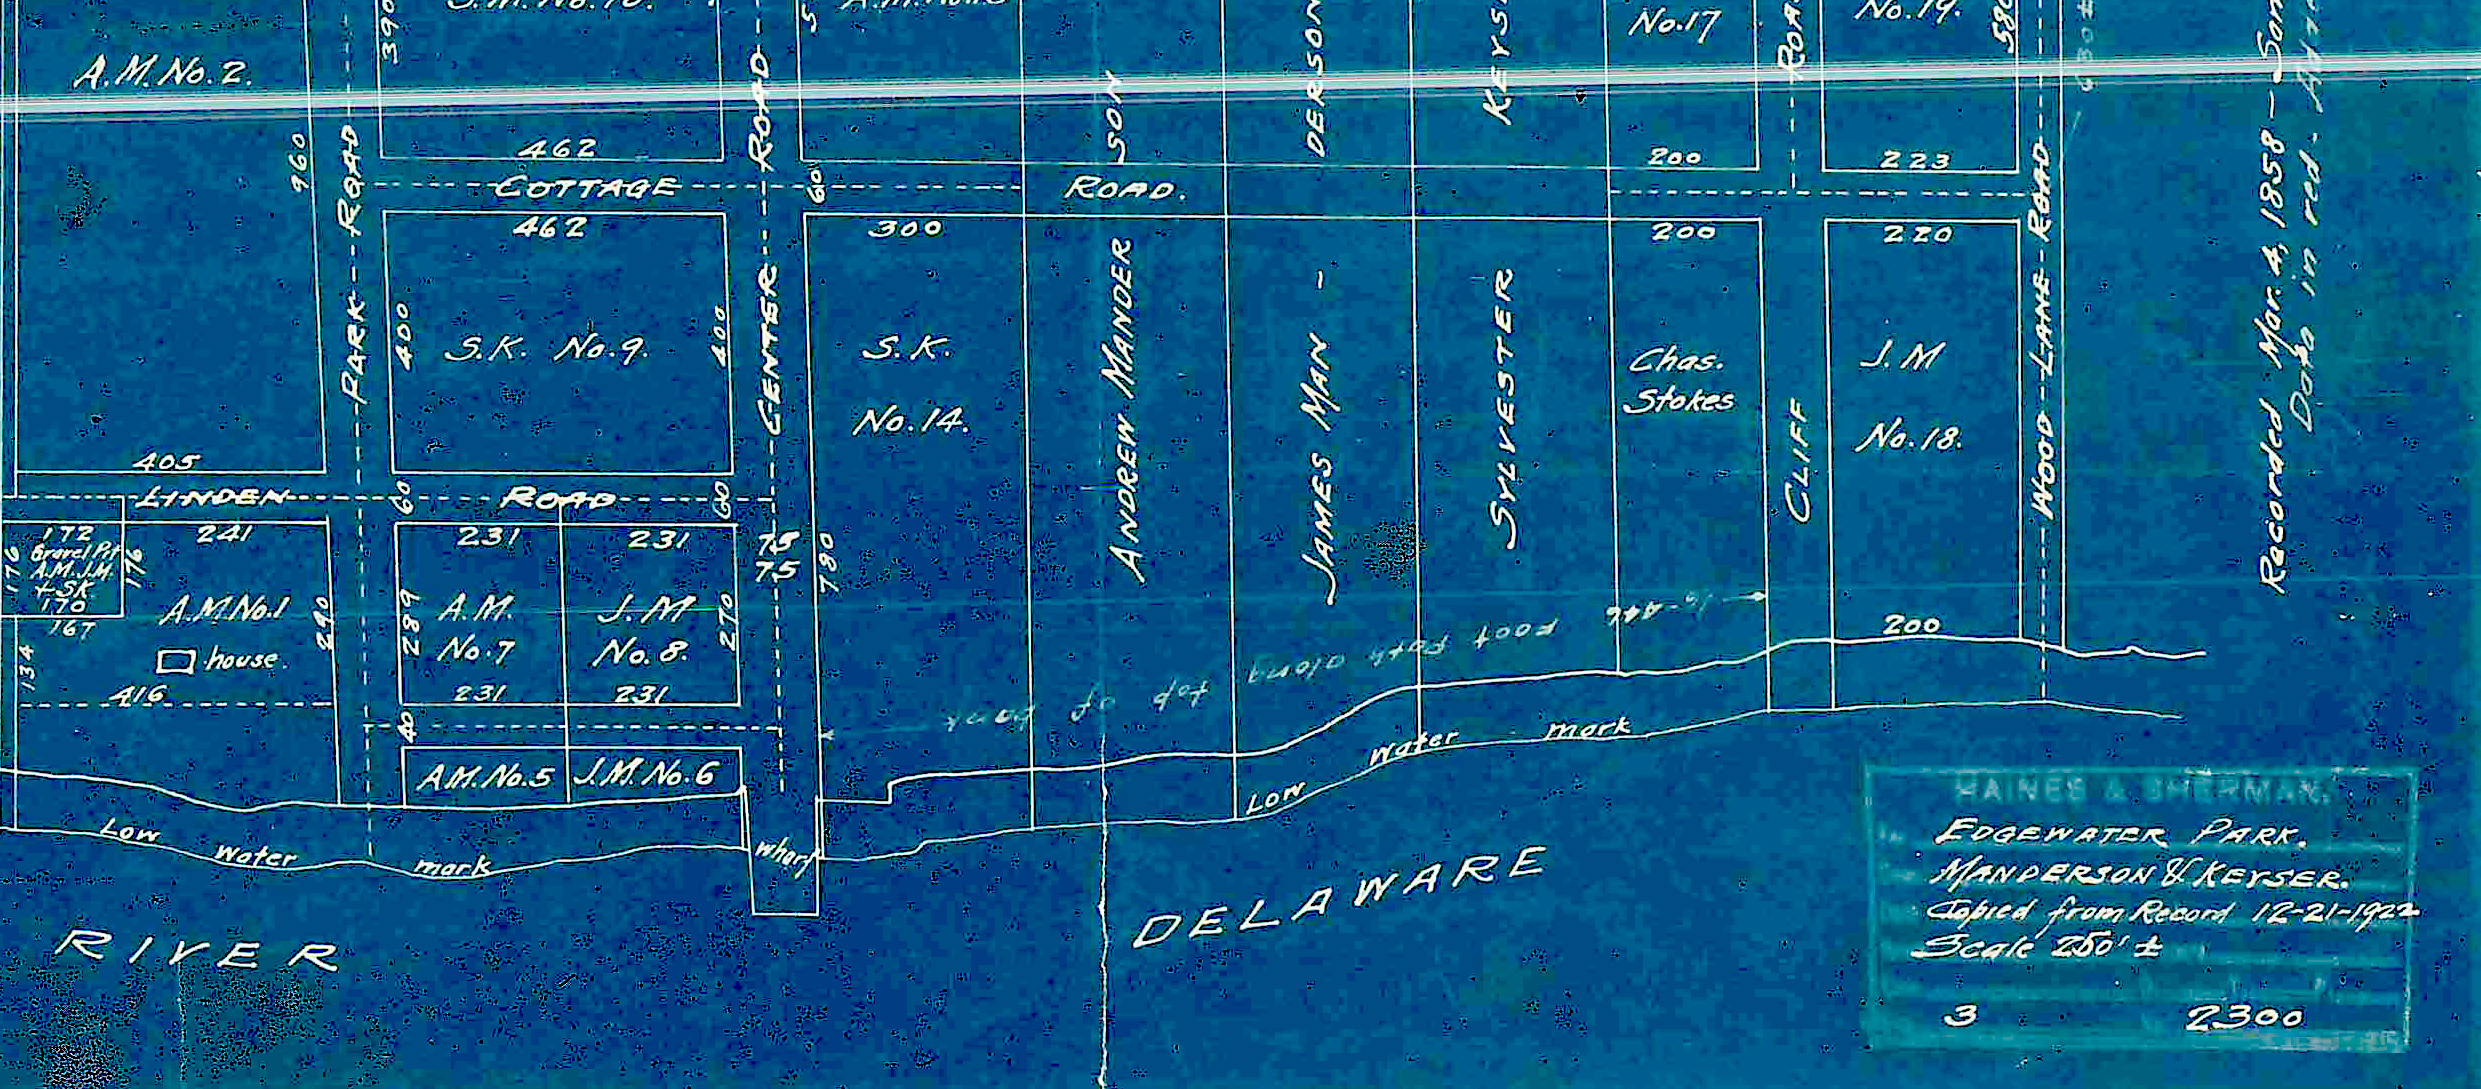 A.M. No. 2.
390
No. 17
ROAD
No. 19.
580
630±
960
PARK ROAD
462
COTTAGE ROAD.
462
CENTER ROAD
60
300
ANDREW MANDERSON
JAMES MAN-DERSON
SYLVESTER KEYS
200
200
223
220
WOOD LANE ROAD
Recorded Mar. 4, 1858 —
Data in red -
400
S.K. No. 9.
400
S.K.
No. 14.
Chas.
Stokes
CLIFF
J.M
No. 18.
405
LINDEN ROAD
60
60
172
Gravel Pit
A.M. J.M.
+ S.K.
170
167
176
176
241
A.M. No. 1
house.
290
134
416
231
231
289
A.M.
No. 7
J.M
No. 8.
270
231
231
75
75
780
40
A.M. No. 5
J.M. No. 6
Foot Path along top of bank
200
Low water mark
Low water mark
wharf
RIVER
DELAWARE
HAINES & SHERMAN.
EDGEWATER PARK.
MANDERSON & KEYSER.
Copied from Record 12-21-1922
Scale 250' ±
3 2300